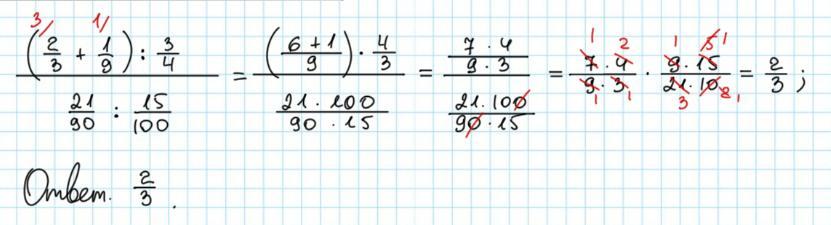 ((2/3)^(3/) + (1/9)^(1/)) : 3/4 / (21/90 : 15/100) = ((6 + 1)/9) · 4/3 / ((21 · 100)/(90 · 15)) = ((7 · 4)/(9 · 3)) / ((21 · 100)/(90 · 15)) = (7 · 4)/(9 · 3) · (9 · 15)/(21 · 10) = 2/3 ;
Ответ. 2/3 .